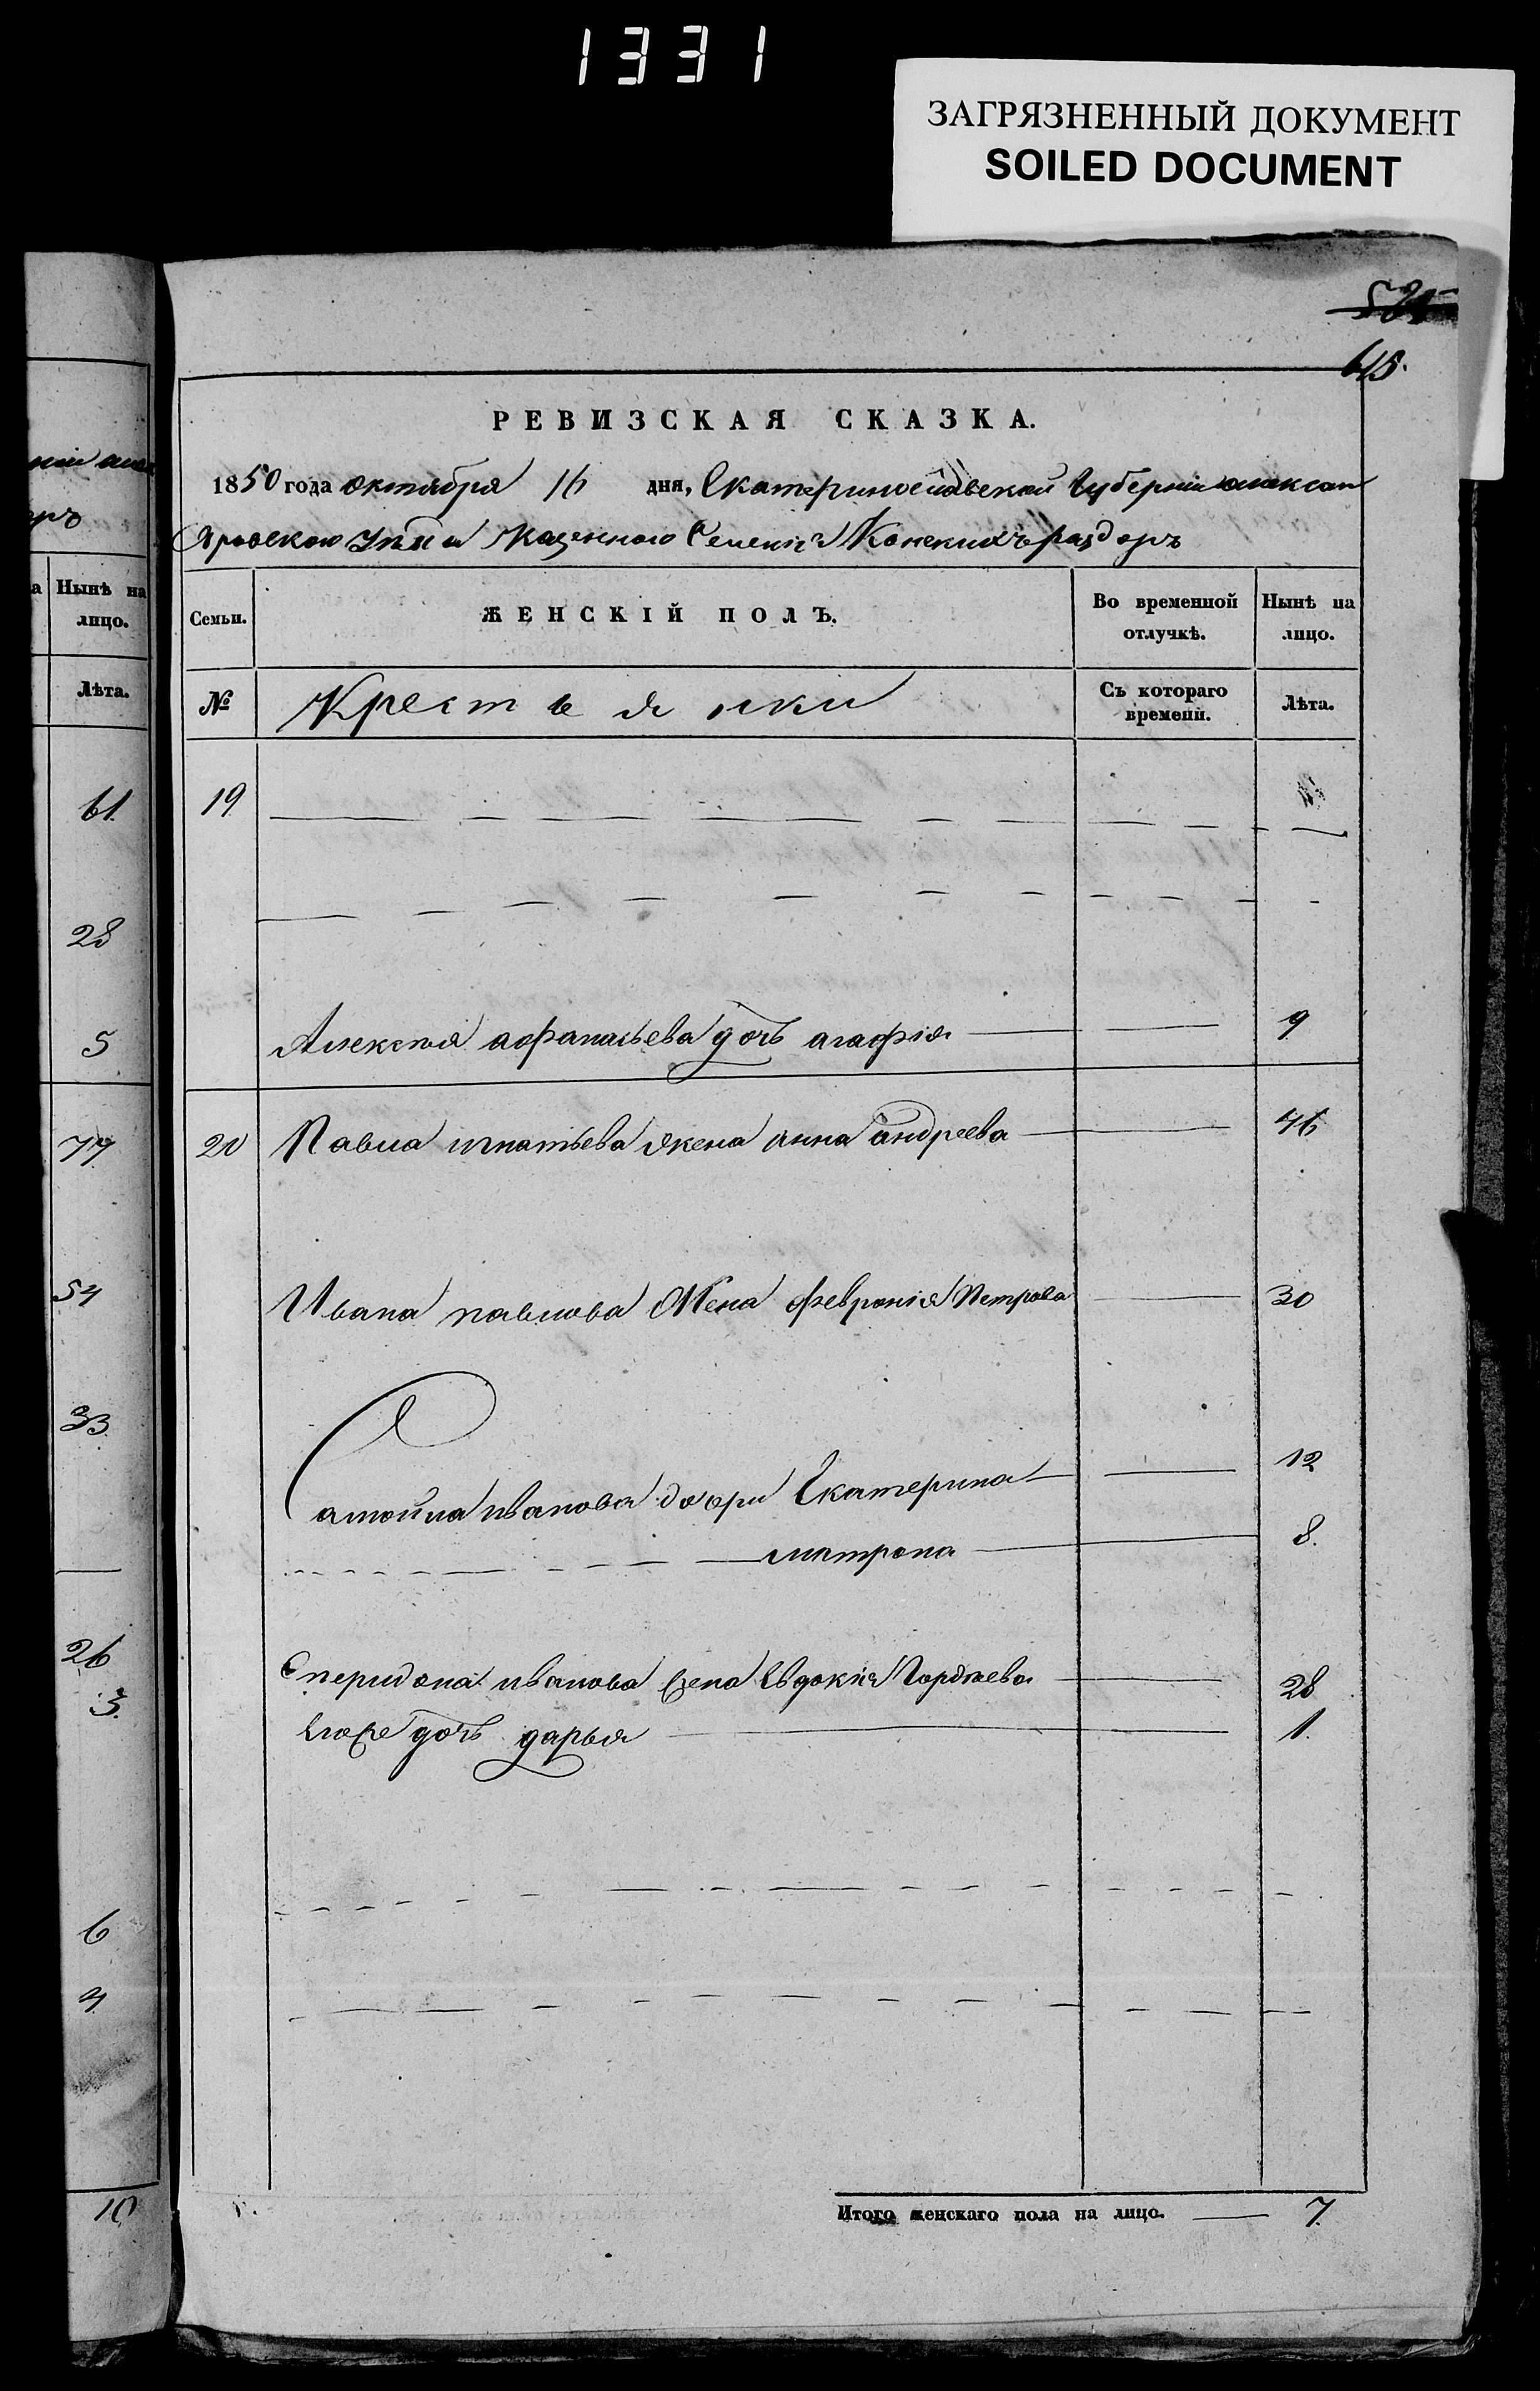 1331
ЗАГРЯЗНЕННЫЙ ДОКУМЕНТ
SOILED DOCUMENT
615.
РЕВИЗСКАЯ СКАЗКА.
1850 года октября 16 дня, Екатеринославской Губернии алексан
дровскою уезда казенного Селения Конскихъ раздоръ
Нынѣ на
лицо.
Лѣта.
61
28
5
77
54
33
26
3.
6
4
10
Семьи.
ЖЕНСКІЙ ПОЛЪ.
Во временной
отлучкѣ.
Нынѣ на
лицо.
№
Крестьянки
Съ котораго
времени.
Лѣта.
19
Алексея афанасьева дочь агафія 9
20 Павла игнатьева жена анна андреева 46
Ивана павлова Жена февронія Петрова 30
Самойла иванова дочри Екатерина 12
матрона 8.
Сперидона иванова жена Евдокія Гордѣева 28
Егоже дочь дарья 1.
Итого женскаго пола на лицо. 7.